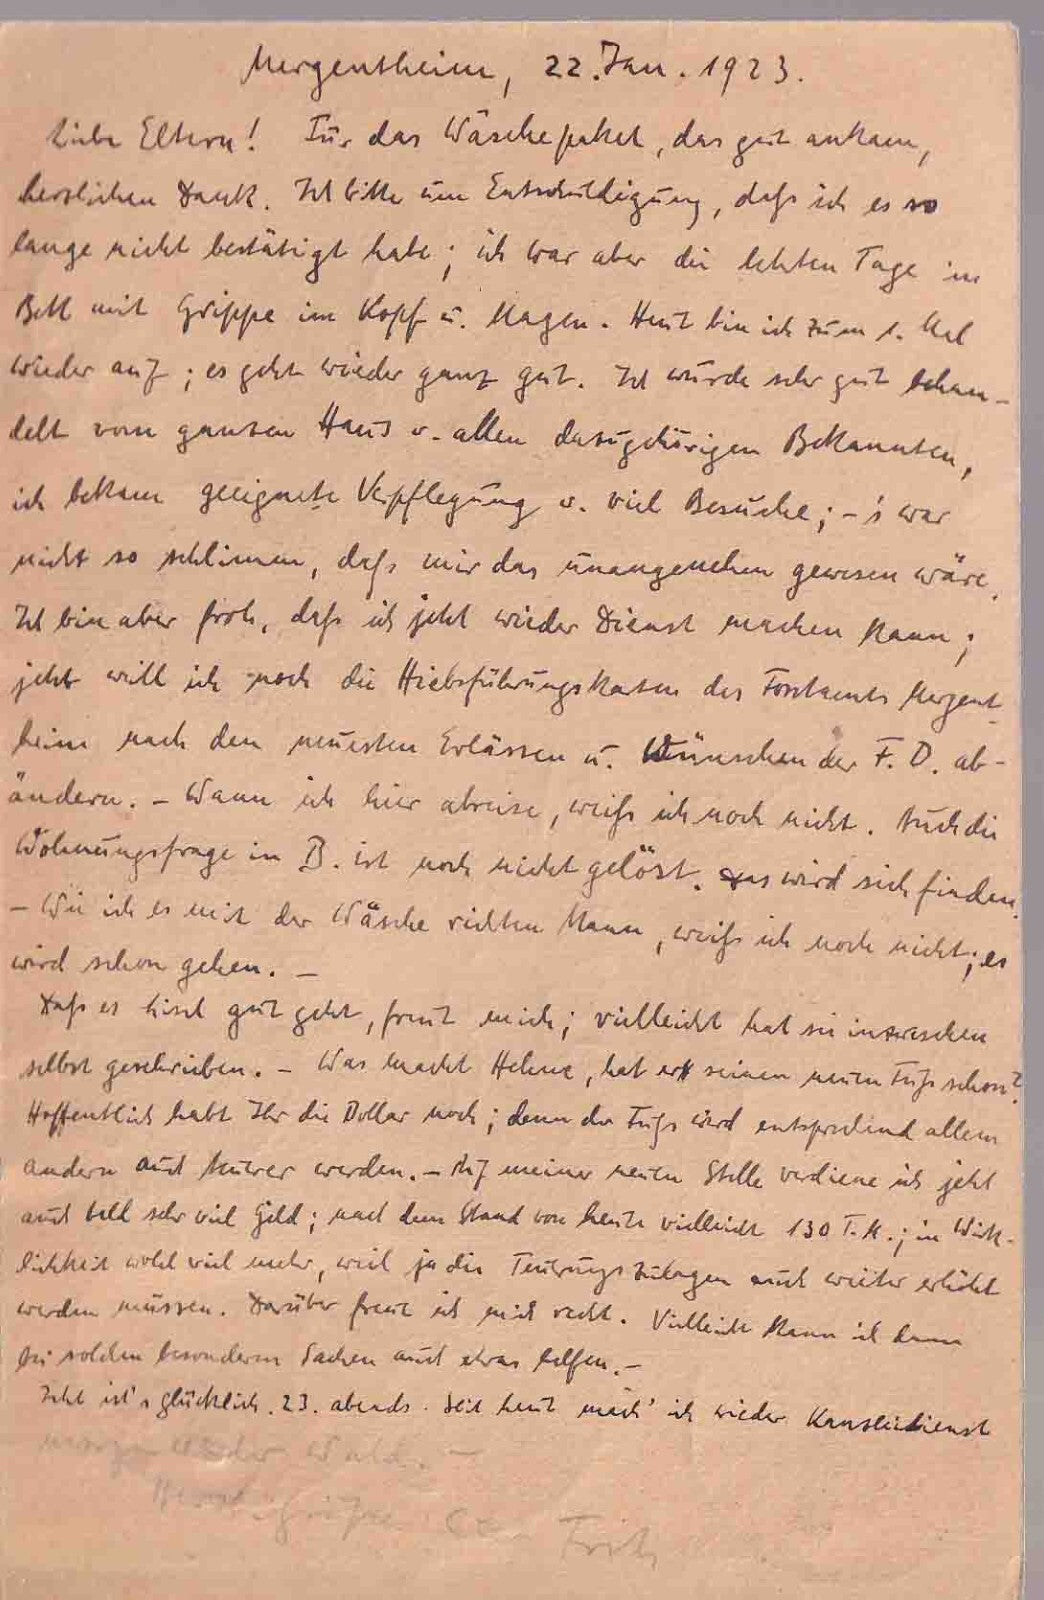 Mergentheim, 22. Jan. 1923.
Liebe Eltern! Für das Wäschepaket, das gut ankam,
herzlichen Dank. Ich bitte um Entschuldigung, daß ich es so
lange nicht bestätigt habe; ich war aber die letzten Tage im
Bett mit Grippe im Kopf u. Magen. Heut bin ich zum 1. Mal
wieder auf; es geht wieder ganz gut. Ich wurde sehr gut behan-
delt vom ganzen Haus u. allen dazugehörigen Bekannten,
ich bekam geeignete Verpflegung u. viel Besuche; – 's war
nicht so schlimm, daß mir das unangenehm gewesen wäre.
Ich bin aber froh, daß ich jetzt wieder Dienst machen kann;
jetzt will ich noch die Hiebsführungskarten des Forstamts Mergent-
heim nach den neuesten Erlässen u. Wünschen der F. D. ab-
ändern. – Wann ich hier abreise, weiß ich noch nicht. Auch die
Wohnungsfrage in B. ist noch nicht gelöst. Das wird sich finden.
– Wie ich es mit der Wäsche richten kann, weiß ich noch nicht; es
wird schon gehen. –
Daß es Lisel gut geht, freut mich; vielleicht hat sie inzwischen
selbst geschrieben. – Was macht Helmut, hat er seinen neuen Fuß schon?
Hoffentlich habt Ihr die Dollar noch; denn der Fuß wird entsprechend allem
andern auch teurer werden. – Auf meiner neuen Stelle verdiene ich jetzt
auch bald sehr viel Geld; nach dem Stand von heute vielleicht 130 T. M.; in Wirk-
lichkeit wohl viel mehr, weil ja die Teuerungszulagen auch weiter erhöht
werden müssen. Darüber freue ich mich recht. Vielleicht kann ich dann
bei solchen besonderen Sachen auch etwas helfen. –
Jetzt ist's glücklich 23. abends. Seit heut mach' ich wieder Kanzleidienst
morgen wieder Wald. –
Grüße Fritz